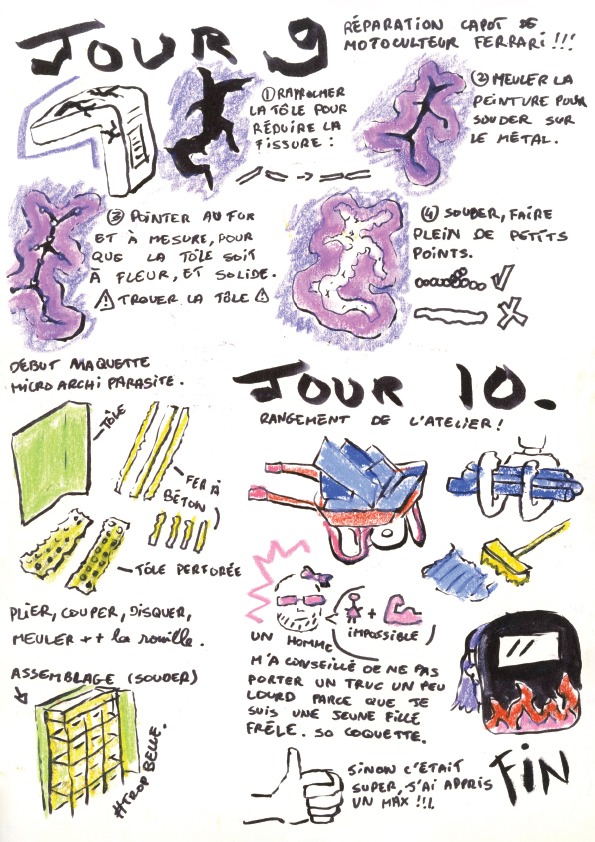 JOUR 9
RÉPARATION CAPOT DE
MOTOCULTEUR FERRARI !!!
① RAPPROCHER
LA TÔLE POUR
RÉDUIRE LA
FISSURE :
② MEULER LA
PEINTURE POUR
SOUDER SUR
LE MÉTAL.
③ POINTER AU FUR
ET À MESURE, POUR
QUE LA TÔLE SOIT
À FLEUR, ET SOLIDE.
⚠ TROUER LA TÔLE ⚠
④ SOUDER, FAIRE
PLEIN DE PETITS
POINTS.
DÉBUT MAQUETTE
MICRO ARCHI PARASITE.
TÔLE
FER À
BÉTON
TÔLE PERFORÉE
PLIER, COUPER, DISQUER,
MEULER ++ la rouille.
ASSEMBLAGE (SOUDER)
#TROP BELLE.
JOUR 10.
RANGEMENT DE L'ATELIER !
(
+
IMPOSSIBLE )
UN HOMME
M'A CONSEILLÉ DE NE PAS
PORTER UN TRUC UN PEU
LOURD PARCE QUE JE
SUIS UNE JEUNE FILLE
FRÊLE. SO COQUETTE.
SINON C'ÉTAIT
SUPER, J'AI APPRIS
UN MAX !!!
FIN